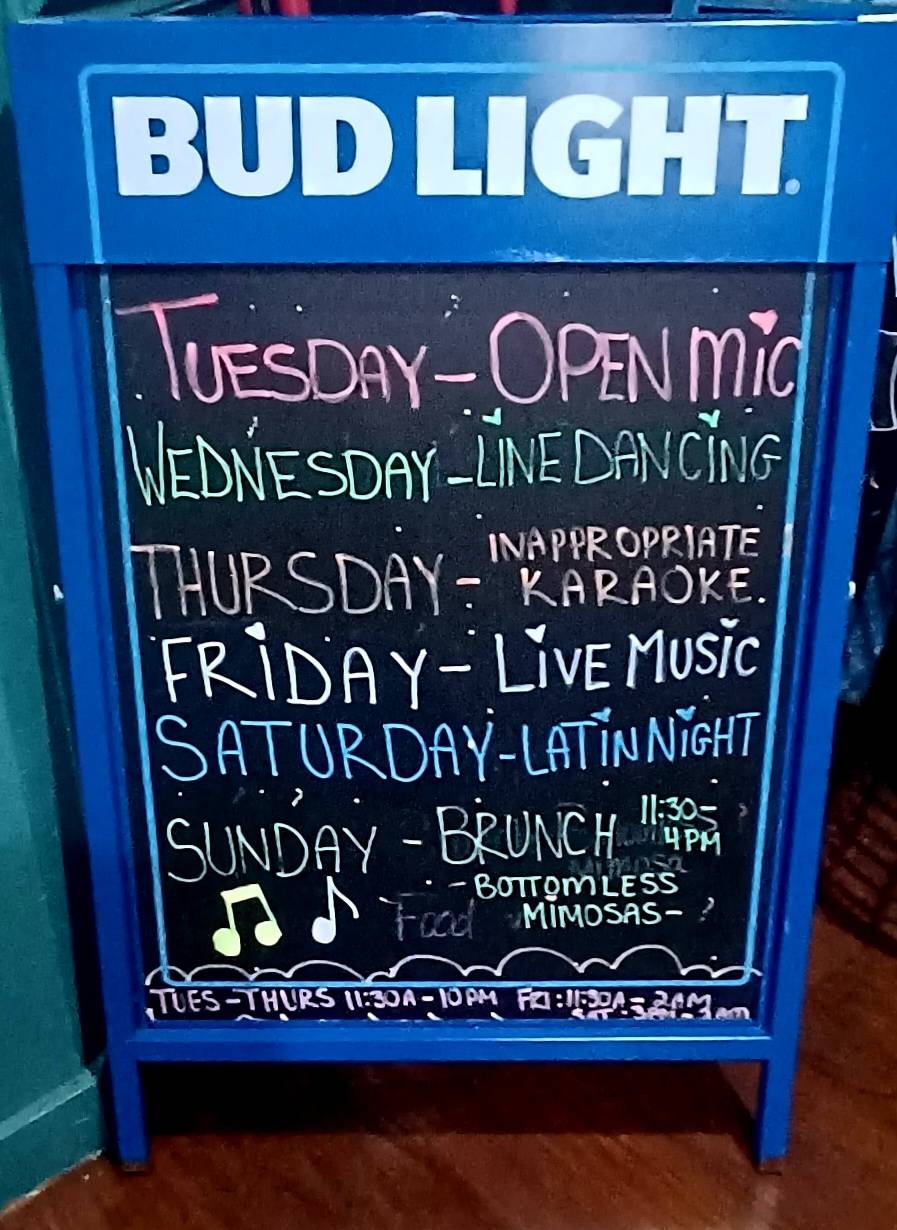 BUD LIGHT
TUESDAY - OPEN MIC
WEDNESDAY - LINE DANCING
THURSDAY - INAPPROPRIATE
KARAOKE.
FRIDAY - LIVE MUSIC
SATURDAY - LATIN NIGHT
SUNDAY - BRUNCH 11:30-
4PM
mimosa
- BOTTOMLESS
Food MIMOSAS-
TUES-THURS 11:30A-10PM FRI:11:30A-2AM
SAT: